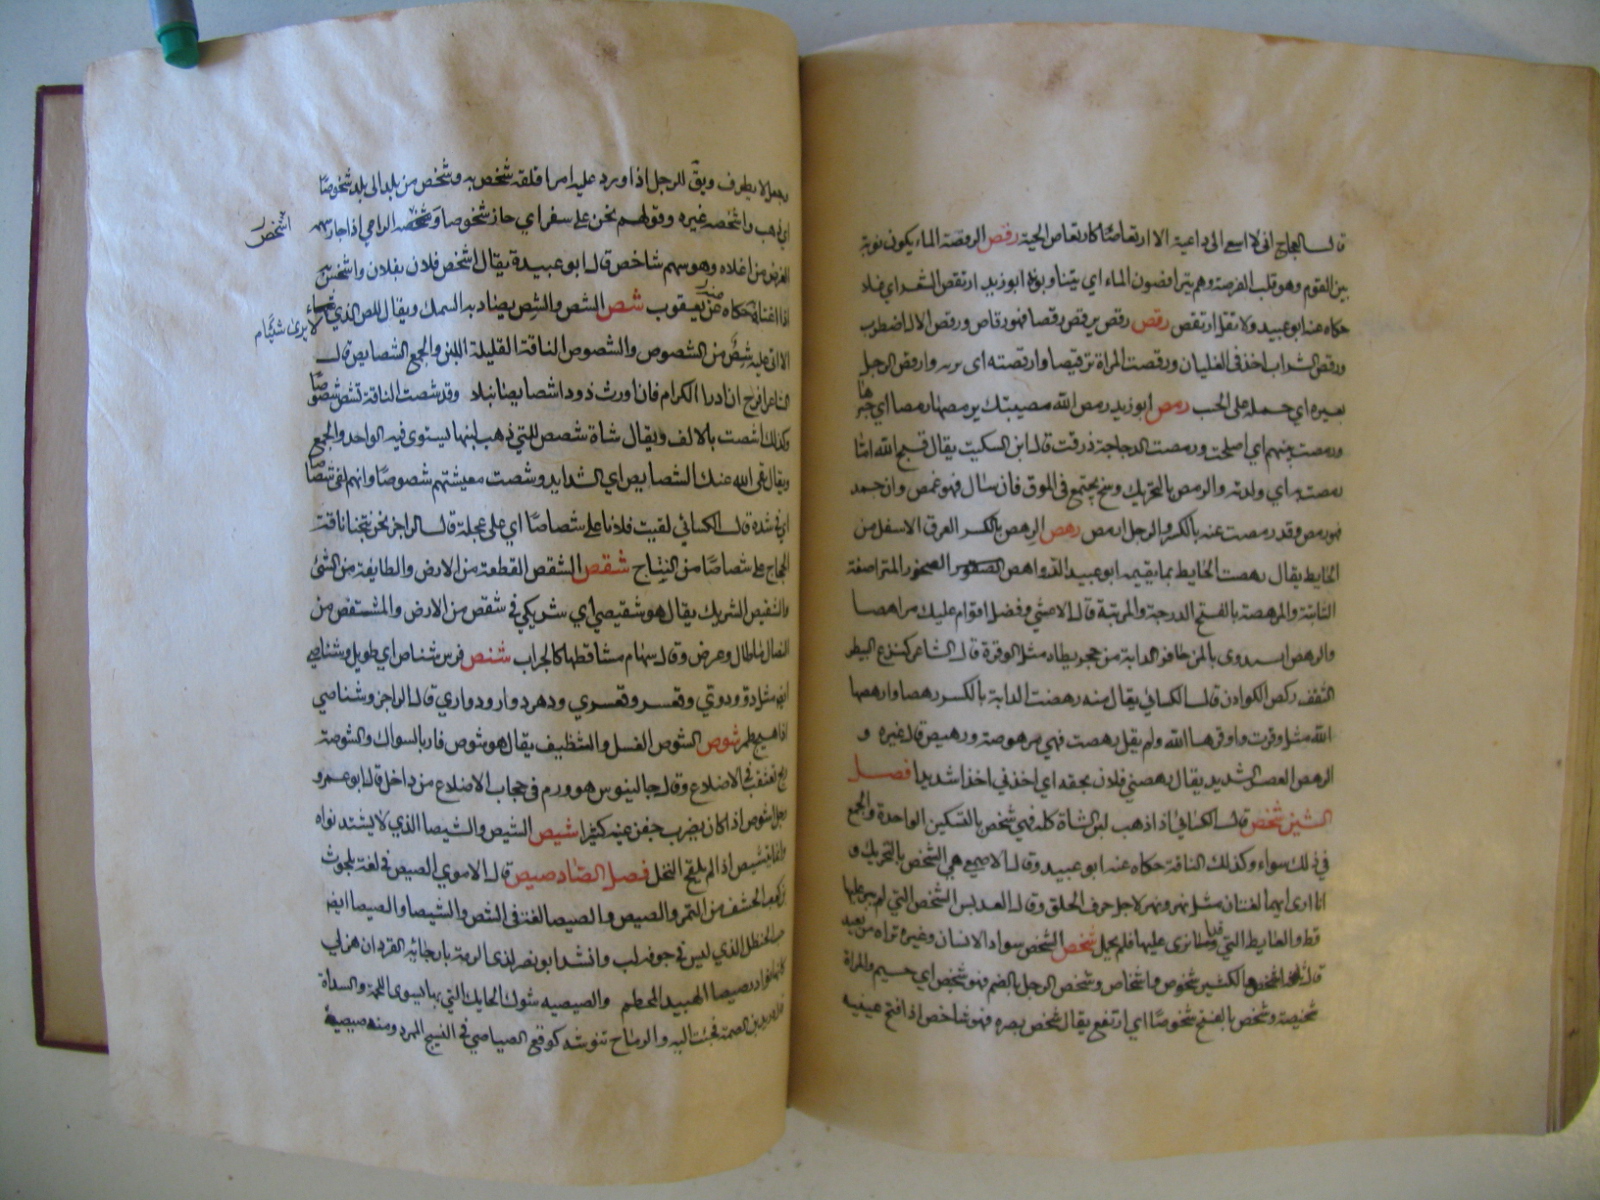 قال العجاج انى لا اسع الى داعية الا ارتعاصا كارتعاص الحية رفص الرفصة الماء يكون نوبة
بين القوم وهو قلب الفرصة وهم يترافصون الماء اي يتناوبونه ابوزيد ارتفص السعر اي غلا
حكاه عنه ابو عبيد ولا تقل ارتقص رقص رقص يرقص رقصا فهو رقاص ورقص الال اضطرب
ورقص الشراب اخذ فى الغليان ورقصت المراة ترقيصا وارقصته اى نزيه وارقص الرجل
بعيره اي حمله على الخب رمص ابوزيد رمص الله مصيبتك يرمصها رمصا اي جبرها
ورمصت بينهم اي اصلحت ورمصت الدجاجة ذرقت قال ابن السكيت يقال قبح الله اما
رمصت به اي ولدته والرمص بالتحريك وسخ يجتمع فى الموق فان سال فهو غمص وان جمد
فهو رمص وقد رمصت عينه بالكسر والرجل ارمص رهص الرهص بالكسر العرق الاسفل من
الحايط يقال رهصت الحايط بما يقيمه ابو عبيد الرواهص الصخور المتراصفة
الثابتة والمرهصة بالفتح الدرجة والمرتبة قال الاعشي وفضل اقوام عليك مراهصا
والرهص ان يدوى باطن حافر الدابة من حجر يطاه مثل الوقرة قال الشاعر كبزغ البيطر
الثقف رهص الكوادن قال الكسائي يقال منه رهصت الدابة بالكسر رهصا وارهصها
الله مثل وقرت واوقرها الله ولم يقل رهصت فهي مرهوصة ورهيص قاله غيره و
الرهص العصر الشديد يقال رهصني فلان بحقه اي اخذني اخذا شديدا فصل
الشين شخص قال الكسائي اذا ذهب لبن الشاة كله فهي شخص بالتسكين الواحدة والجمع
في ذلك سواء وكذلك الناقة حكاه عنه ابو عبيد وقال الاصمعي هي الشخص بالتحريك و
انا ارى انهما لغتان مثل نهر ونهر لاجل حرف الحلق وقال العدبس الشخص التي لم ينز عليها
قط والعايط التي قد انزى عليها فلم تحمل شخص الشخص سواد الانسان وغيره تراه من بعيد
قال ثلثة اشخص والكثير شخوص واشخاص وشخص الرجل بالضم فهو شخيص اي جسيم والمراة
شخيصة وشخص بالفتح شخوصا اي ارتفع يقال شخص بصره فهو شاخص اذا فتح عينيه
وجعل لا يطرف ويق للرجل اذا ورد عليه امر اقلقه شخص به وشخص من بلد الى بلد شخوصا
اي ذهب واشخصه غيره وقولهم نحن على سفر اي حاز شخوصا وشخصه الرامي اذا جاز سهمه
اشخص
الغرض من اعلاه وهو سهم شاخص قال ابو عبيدة يقال اشخص فلان بفلان واشخس به
اذا اغتابه حكاه عنه يعقوب شصص الشص والشص يصاد به السمك ويقال للص الذي لا يرى شيئا
الا اتى عليه شص من الشصوص والشصوص الناقة القليلة اللبن والجمع الشصايص قال
الشاعر افرح ان ارزا الكرام وان اورث ذودا شصايصا نبلا وقد شصت الناقة تشص شصوصا
وكذلك اشصت بالالف ويقال شاة شصص للتي ذهب لبنها يستوي فيه الواحد والجمع
ويقال نفى الله عنك الشصايص اي الشدايد وشصت معيشتهم شصوصا وانهم لفي شصاصا
اي في شدة قال الكسائي لقيت فلانا على شصاصا اي على عجلة قال الراجز نحن نتجنا ناقة
الحجاج على شصاصا من النتاج شقص الشقص القطعة من الارض والطايفة من الشئ
والشقيص الشريك يقال هو شقيصي اي شريكي في شقص من الارض والمشقص من
النصال ما طال وعرض وقال سهام مشاقصها كالحراب شنص فرس شناص اي طويل وشناصي
ايضا مثل دو ودوي وقعسر وقعسري ودهر دوار ودواري قال الراجز وشناصي
اذا هيج طمر شوص الشوص الغسل والتنظيف يقال هو يشوص فاه بالسواك والشوصة
ريح تعتقب في الاضلاع وقال جالينوس هو ورم فى حجاب الاضلاع من داخل قال ابو عمرو
رجل اشوص اذا كان يضرب جفن عينه كثيرا شيص الشيص والشيصا الذي لا يشتد نواه
وانما يشيص اذا لم يلقح النخل فصل الصاد صيص قال الاموي الصيص في لغة بلحرث
بن كعب الحشف من التمر والصيص والصيصا لغة في الشيص والشيصا والصيصا ايضا
حب الحنظل الذي ليس في جوفه لب وانشد ابو نصر لذى الرمة بارجائه القردان هزلى
كانها نوادر صيصا الهبيد المحطم والصيصية شوك الحايك التي بها يسوى اللحمة والسداة
قال دريد بن الصمة فجئت اليه والرماح تنوشه كوقع الصياصي في النسيج الممدد ومنه صيصية